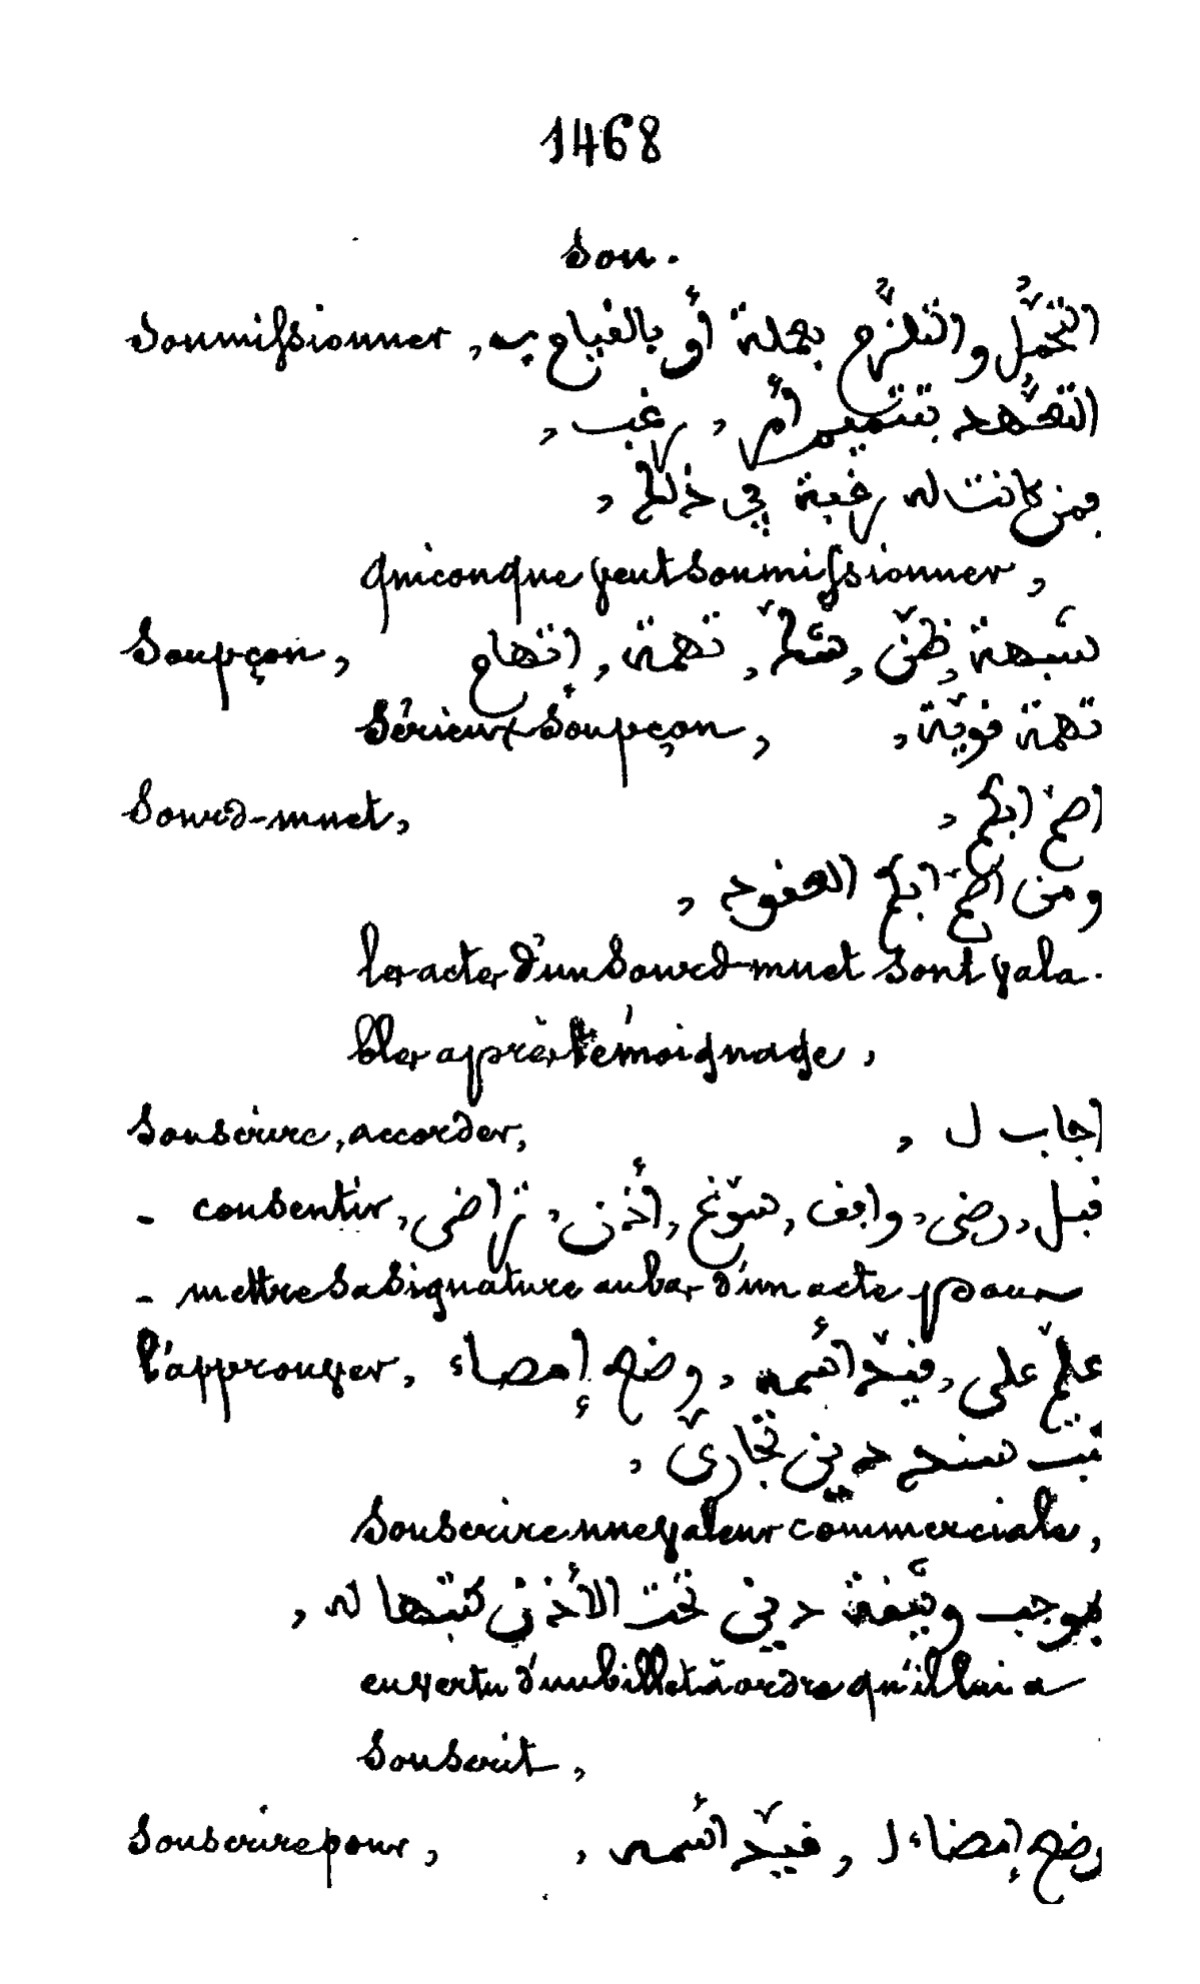 1468
Sou.
Soumissionner, التحمّل والتلزّم بعملة أو بالقيام به
التعهّد بتتميم أمر، رغب،
فمن كانت له رغبة في ذلك،
quiconque veut soumissionner,
Soupçon, شبهة، ظنّ، شكّ، تهمة، إتهام
Sérieux soupçon, تهمة قويّة،
Sourd-muet, اصمّ ابكم،
ومن اصمّ ابكم العقود،
les actes d'un Sourd-muet sont vala-
bles après témoignage,
Souscrire, accorder, اجاب ل،
- consentir, قبل، رضى، وافق، سوّغ، أذن، تراضى
- mettre sa signature au bas d'un acte pour
l'approuver, علّم على، قيّد اسمه، وضع إمضاء
ثبت سند دين تجاريّ،
Souscrire une valeur commerciale,
بموجب وثيقة دين تحت الأذن كتبها له،
en vertu d'un billet à ordre qu'il lui a
Souscrit,
Souscrire pour, وضع إمضاء ل، قيّد اسمه،